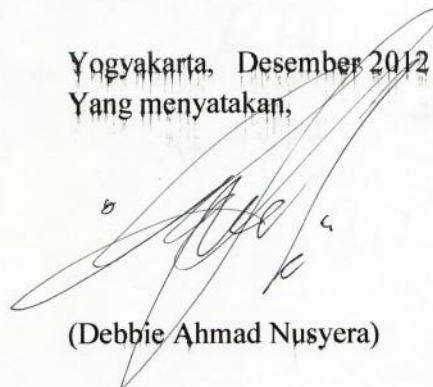 Yogyakarta, Desember 2012
Yang menyatakan,
(Debbie Ahmad Nusyera)